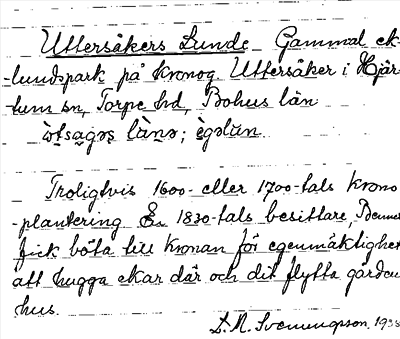 Uttersåkers Lunde Gammal ek-
-lundspark på kronog. Uttersåker i Hjär-
-tum sn, Torpe hd, Bohus län
ùtsagəs lùnə; ègəlùn.
Troligtvis 1600- eller 1700-tals krono
-plantering. En 1830-tals besittare,
fick böta till kronan för egenmäktighet
att hugga ekar där och dit flytta gården
hus.